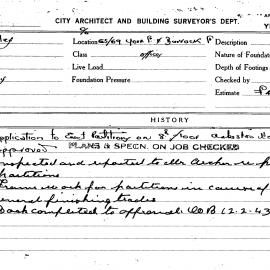 CITY ARCHITECT AND BUILDING SURVEYOR'S DEPT.
Location 65/69 York St & Barrack St Description
Class offices Nature of Foundation
Live Load Depth of Footings
Foundation Pressure Checked by
Estimate
HISTORY
application to Erect Partitions on 8th floor asbestos
approved PLANS & SPECN. ON JOB CHECKED
Inspected and reported to Mr Archer re
partitions
Frame work for partitions in course of
general finishing trades
Work completed to approval WB 12-2-43